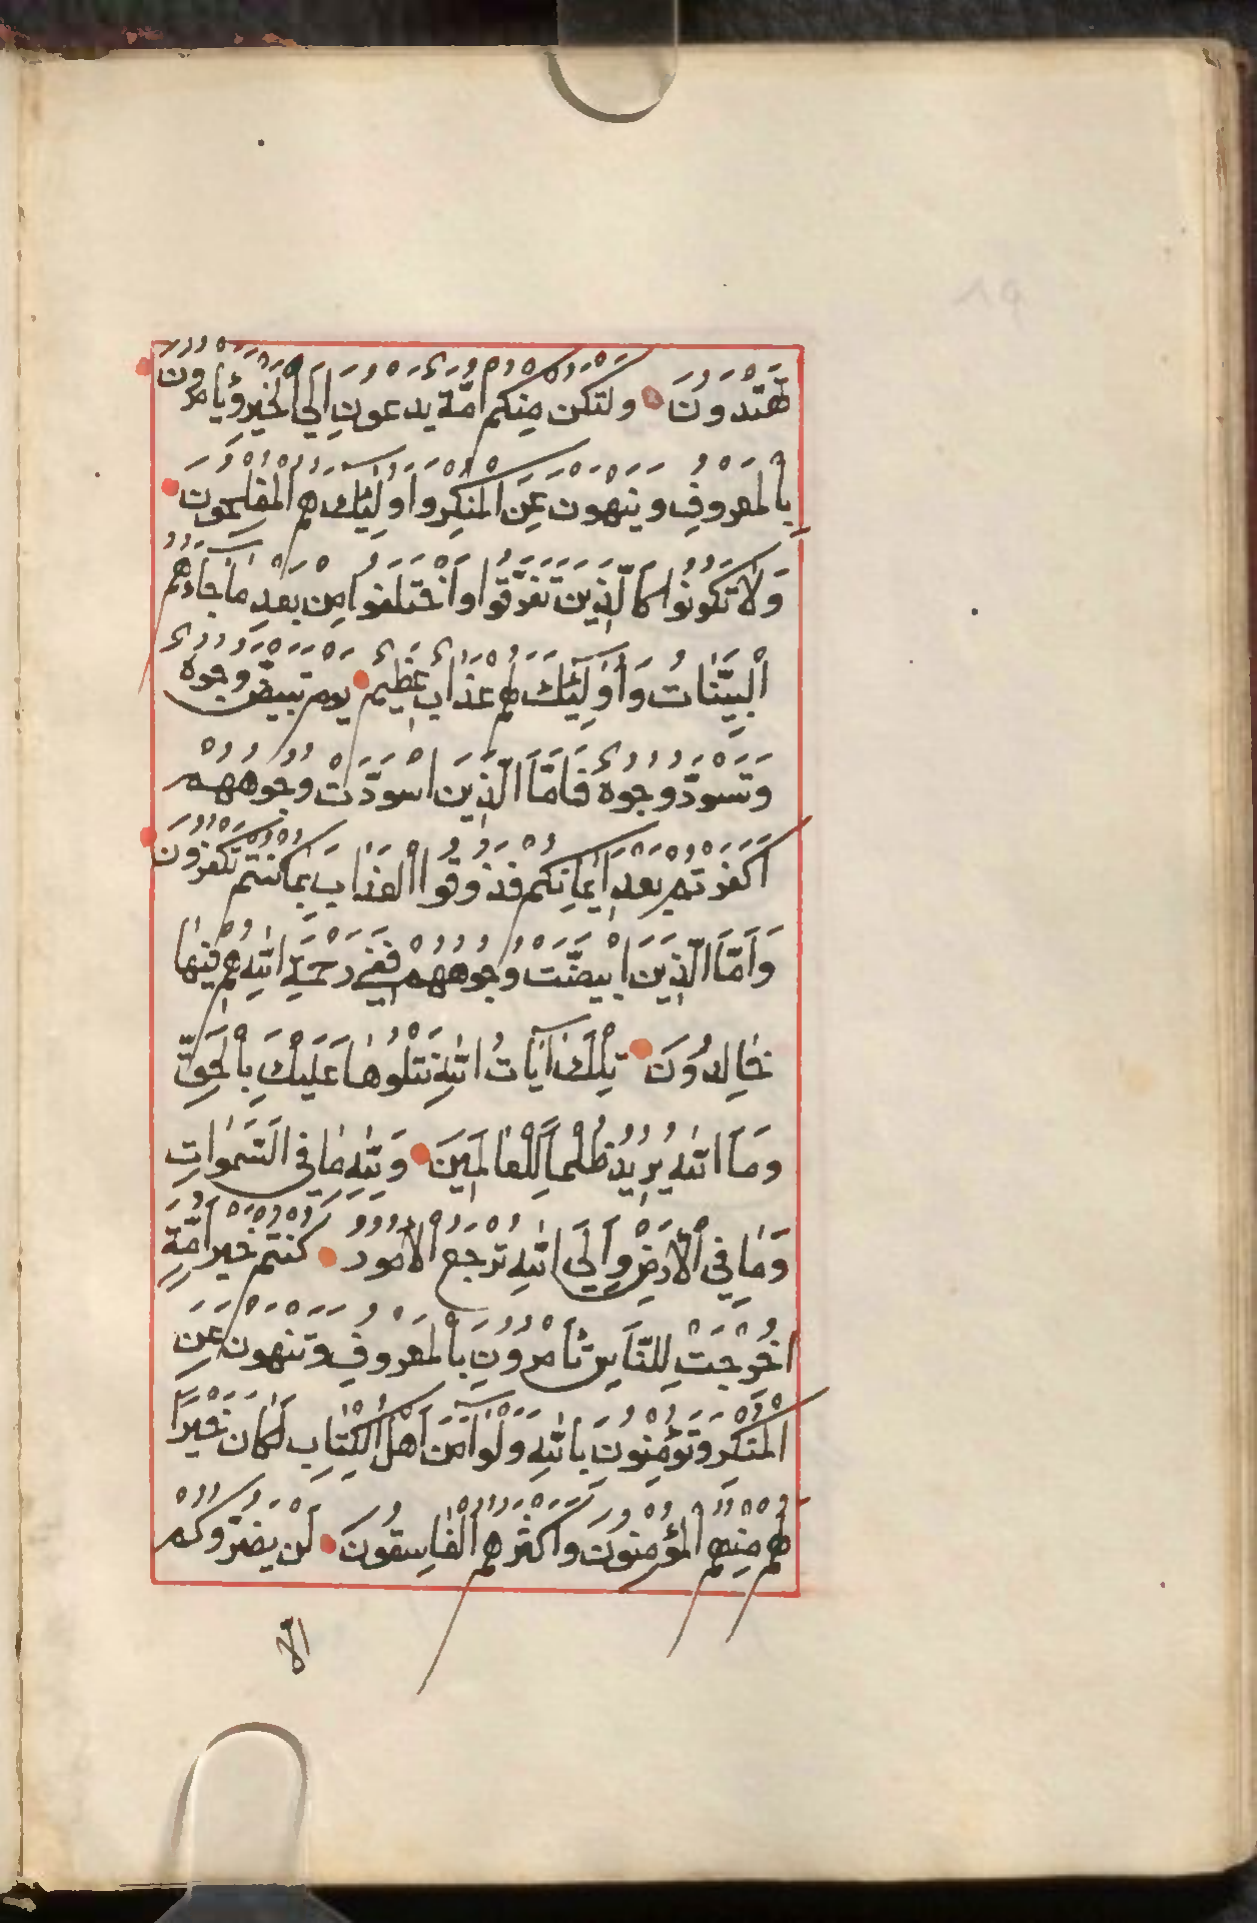 تَهْتَدُونَ وَلْتَكُنْ مِنْكُمْ اُمَّةٌ يَدْعُونَ اِلَى الْخَيْرِ وَيَأْمُرُونَ
بِالْمَعْرُوفِ وَيَنْهَوْنَ عَنِ الْمُنْكَرِ وَاُولٰٓئِكَ هُمُ الْمُفْلِحُونَ
وَلَا تَكُونُوا كَالَّذِينَ تَفَرَّقُوا وَاخْتَلَفُوا مِنْ بَعْدِ مَا جَاءَهُمُ
الْبَيِّنَاتُ وَاُولٰٓئِكَ لَهُمْ عَذَابٌ عَظِيمٌ يَوْمَ تَبْيَضُّ وُجُوهٌ
وَتَسْوَدُّ وُجُوهٌ فَاَمَّا الَّذِينَ اسْوَدَّتْ وُجُوهُهُمْ
اَكَفَرْتُمْ بَعْدَ اِيمَانِكُمْ فَذُوقُوا الْعَذَابَ بِمَا كُنْتُمْ تَكْفُرُونَ
وَاَمَّا الَّذِينَ ابْيَضَّتْ وُجُوهُهُمْ فَفِي رَحْمَةِ اللّٰهِ هُمْ فِيهَا
خَالِدُونَ تِلْكَ اٰيَاتُ اللّٰهِ نَتْلُوهَا عَلَيْكَ بِالْحَقِّ
وَمَا اللّٰهُ يُرِيدُ ظُلْمًا لِلْعَالَمِينَ وَلِلّٰهِ مَا فِي السَّمٰوَاتِ
وَمَا فِي الْاَرْضِ وَاِلَى اللّٰهِ تُرْجَعُ الْاُمُورُ كُنْتُمْ خَيْرَ اُمَّةٍ
اُخْرِجَتْ لِلنَّاسِ تَأْمُرُونَ بِالْمَعْرُوفِ وَتَنْهَوْنَ عَنِ
الْمُنْكَرِ وَتُؤْمِنُونَ بِاللّٰهِ وَلَوْ اٰمَنَ اَهْلُ الْكِتَابِ لَكَانَ خَيْرًا
لَهُمْ مِنْهُمُ الْمُؤْمِنُونَ وَاَكْثَرُهُمُ الْفَاسِقُونَ لَنْ يَضُرُّوكُمْ
الّا